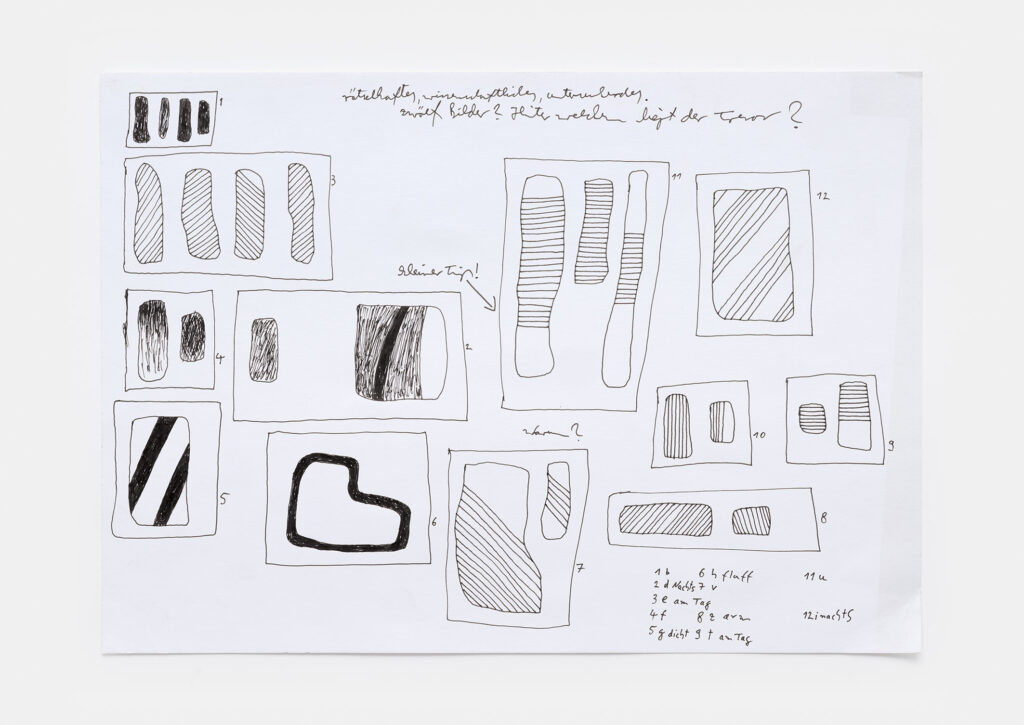 rätselhaftes, wissenschaftliches,
zwölf Bilder? Hinter welchem liegt der Tresor?
1
3
11
12
kleiner Tip!
2
4
10
9
5
warum?
6
7
8
1 b 6 h fluff 11 u
2 d Nachts 7 v
3 e am Tag
4 f 8 z arm 12 i nachts
5 g dicht 9 t am Tag